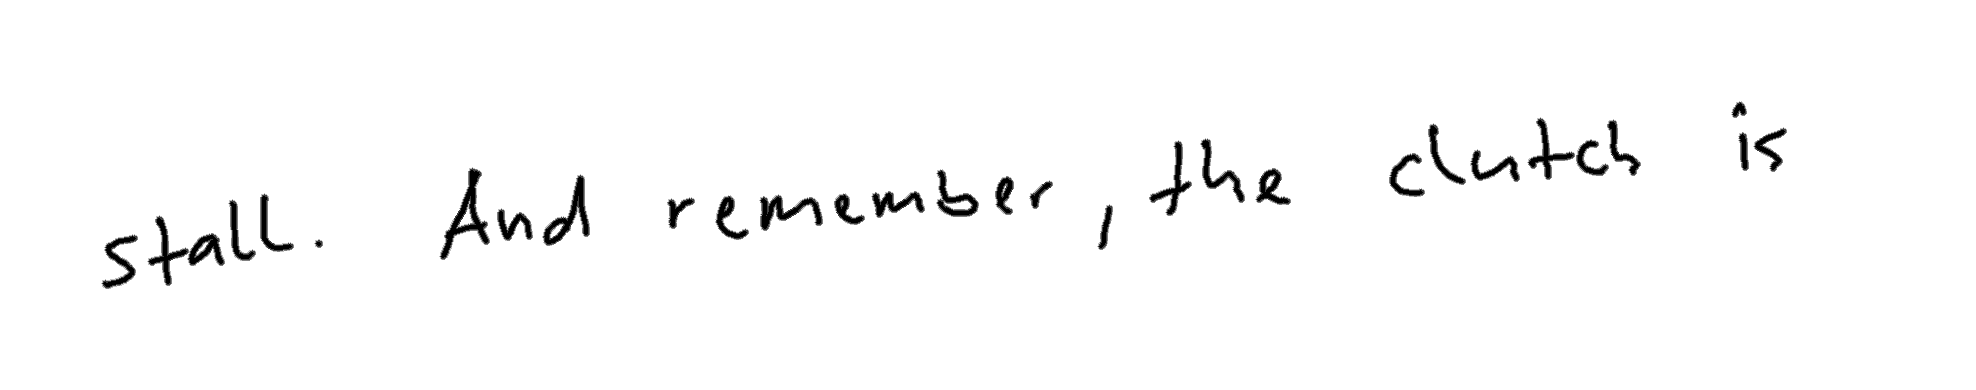 stall. And remember, the clutch is